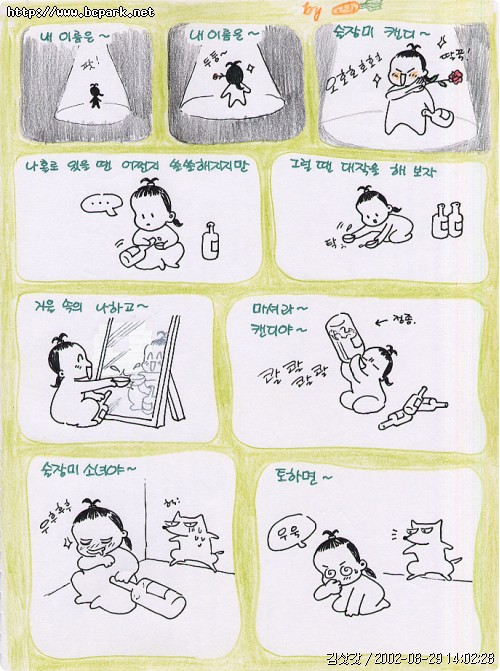 http://www.bcpark.net
by
내 이름은~
팟!
내 이름은~
두둥~
술장미 캔디~
오호호호호
딸꾹!
나홀로 있을 땐 어쩐지 쓸쓸해지지만
...
그럴 땐 대작을 해 보자
탁!
거울 속의 나하고~
마셔라~
캔디야~
← 정종.
콸 콸
콸 콸
술장미 소녀야~
우후후후
헉;
토하면~
우욱
김삿갓 / 2002-08-29 14:02:28